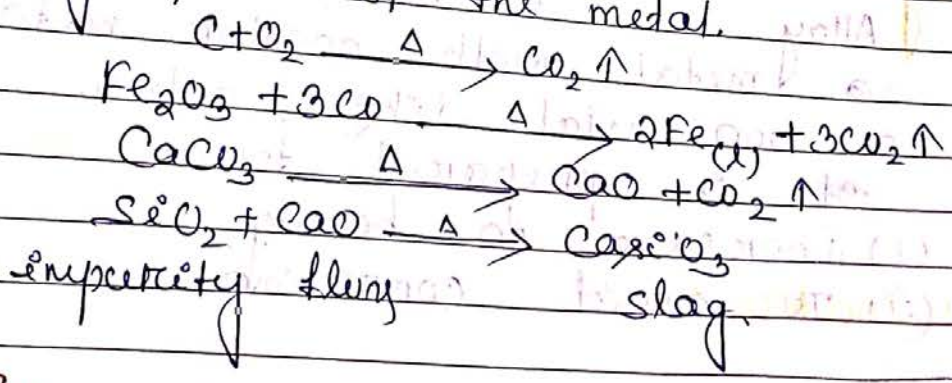 the metal.
C+O₂ —Δ→ CO₂ ↑
Fe₂O₃ + 3CO —Δ→ 2Fe(l) + 3CO₂ ↑
CaCO₃ —Δ→ CaO + CO₂ ↑
SiO₂ + CaO —Δ→ CaSiO₃
impurity flux slag.